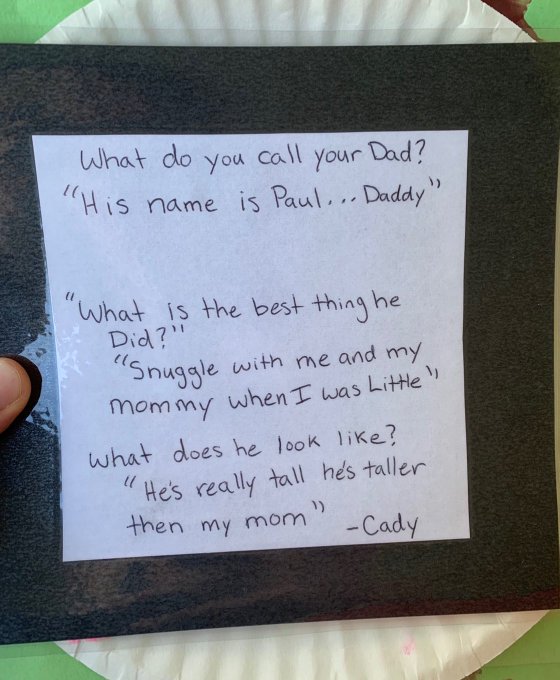 What do you call your Dad?
"His name is Paul... Daddy"
"What is the best thing he
Did?"
"Snuggle with me and my
mommy when I was Little"
What does he look like?
"He's really tall he's taller
then my mom"
-Cady